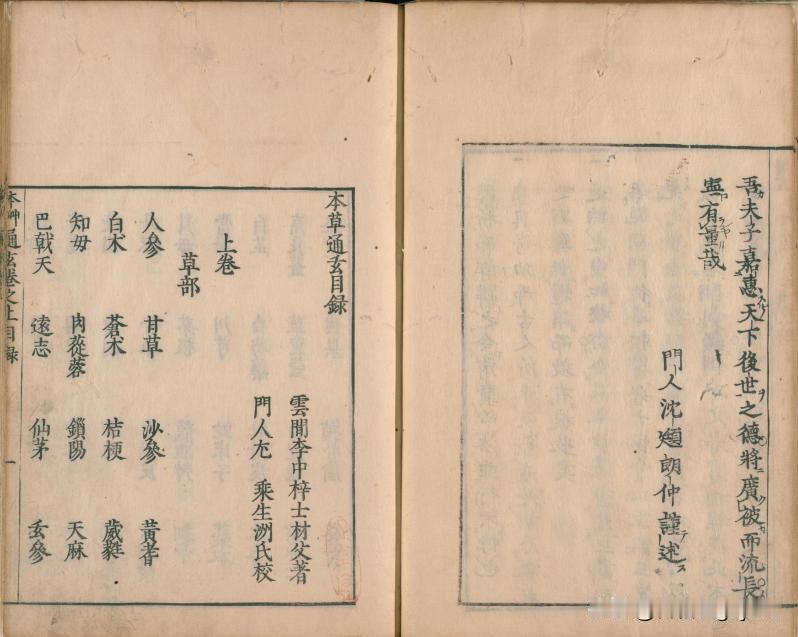 吾夫子嘉惠天下後世之德將廣被而流長
寧有量哉
門人沈頲朗仲謹述
本草通玄目録
雲間李中梓士材父著
門人尢乘生洲氏校
上卷
草部
人參 甘草 沙參 黃耆
白朮 蒼朮 桔梗 葳蕤
知毋 肉蓯蓉 鎖陽 天麻
巴戟天 遠志 仙茅 玄參
本艸通玄卷之上目録 一